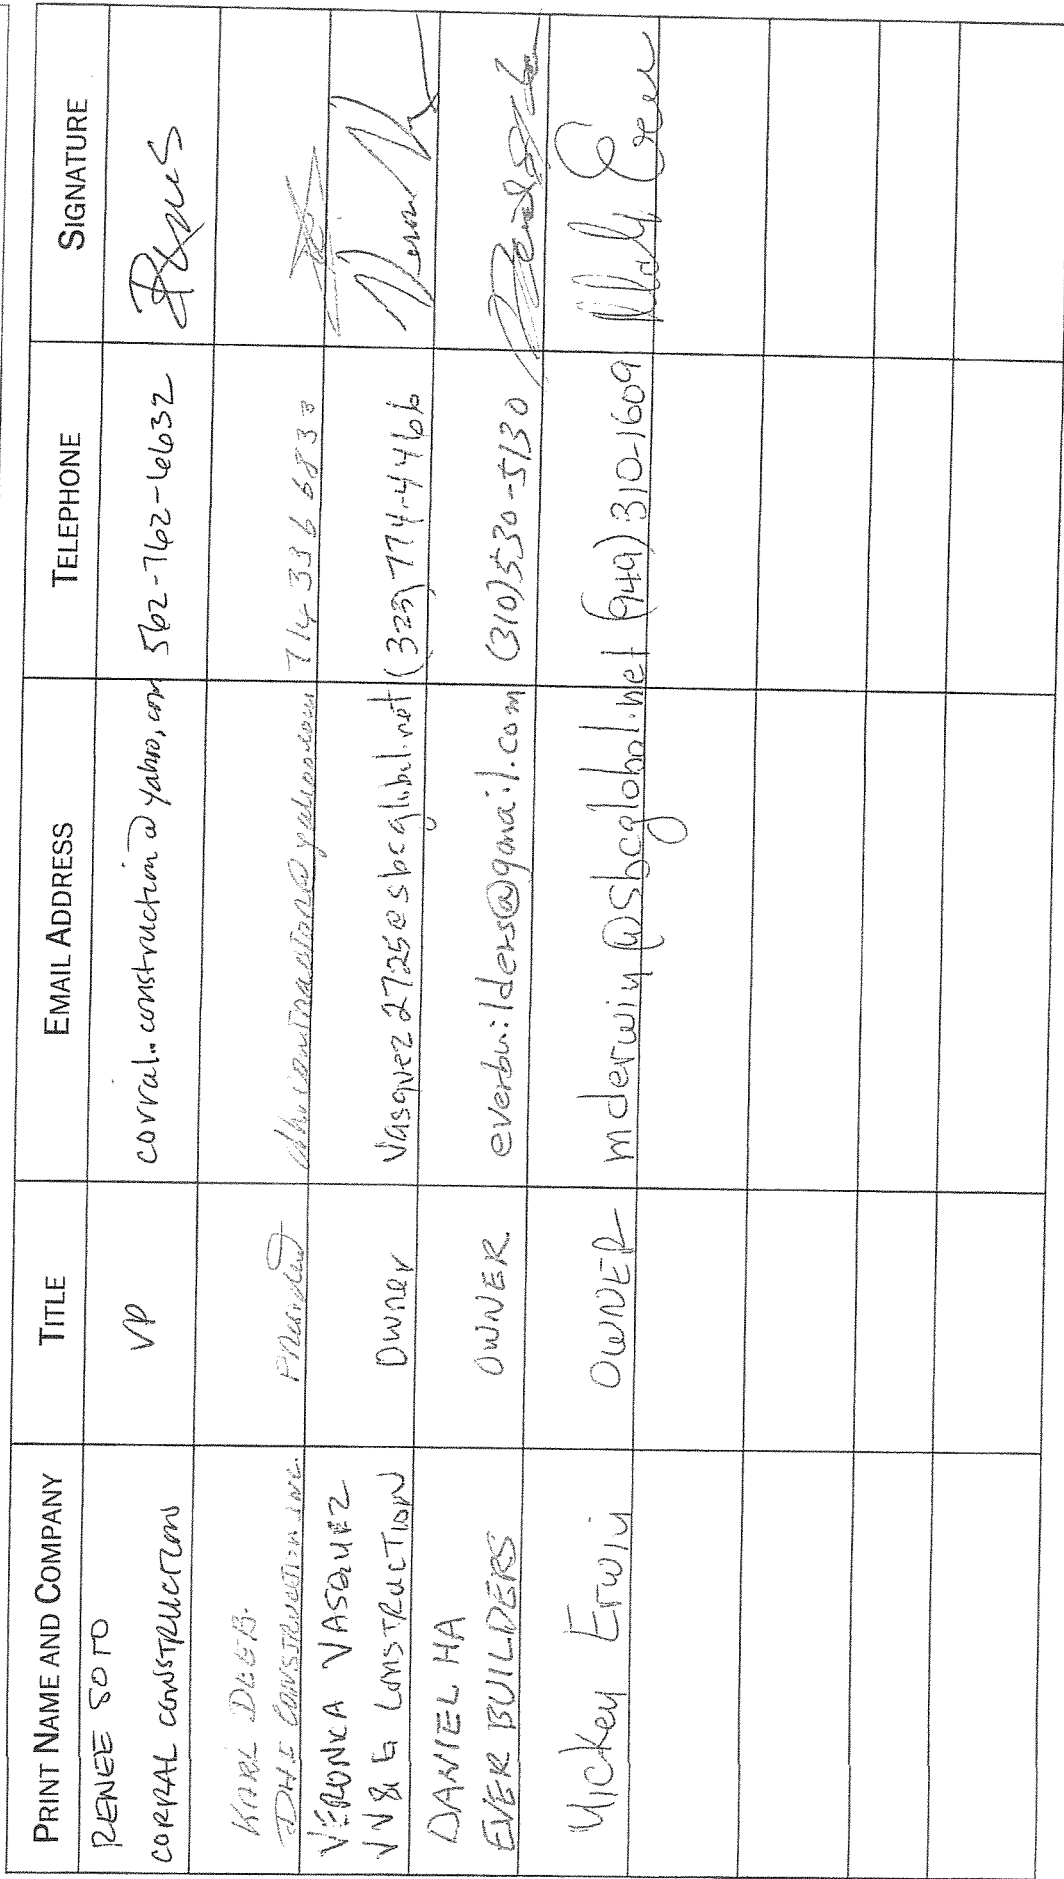 PRINT NAME AND COMPANY TITLE EMAIL ADDRESS TELEPHONE SIGNATURE
RENEE SOTO
CORRAL CONSTRUCTION VP corral.construction@yahoo.com 562-762-6632
KARL DEEB.
DHI CONSTRUCTION INC. President 714 336 6833
VERONICA VASQUEZ
V&G CONSTRUCTION Owner Vasquez2725@sbcglobal.net (323) 774-4466
DANIEL HA
EVER BUILDERS OWNER. everbuilders@gmail.com (310) 530-5130
Mickey Erwin OWNER mderwin@sbcglobal.net (949) 310-1609